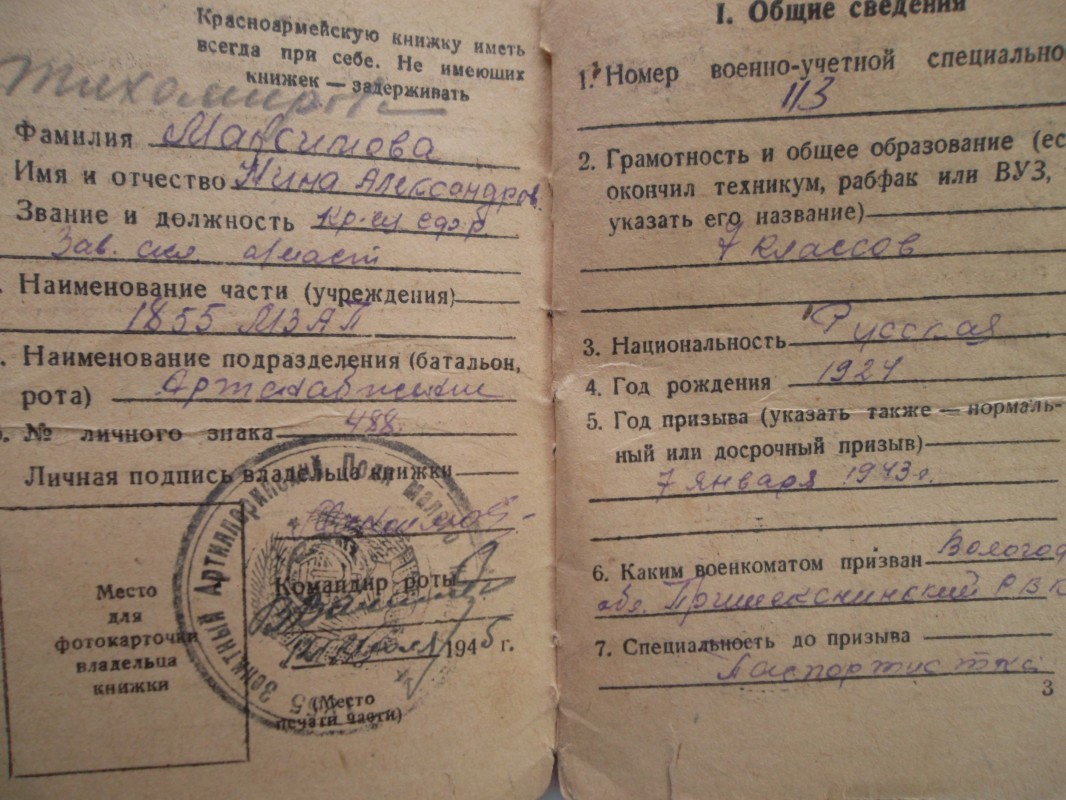 Красноармейскую книжку иметь
всегда при себе. Не имеющих
книжек — задерживать
Тихомирова
Фамилия Максимова
Имя и отчество Нина Александров.
Звание и должность кр-ец ефр
Зав. скл.
Наименование части (учреждения)
1855 МЗАП
Наименование подразделения (батальон,
рота) Артснабжения
№ личного знака 488.
Личная подпись владельца книжки
Командир роты
12 1945 г.
Место
для
фотокарточки
владельца
книжки
(Место
печати части)
Зенитный Артиллерийский Полк Малок
1855
I. Общие сведения
1. Номер военно-учетной специально
113
2. Грамотность и общее образование (ес
окончил техникум, рабфак или ВУЗ,
указать его название)
7 классов
3. Национальность Русская
4. Год рождения 1924
5. Год призыва (указать также — нормаль-
ный или досрочный призыв)
7 января 1943 г.
6. Каким военкоматом призван Вологод
обл. Пришекснинский РВК
7. Специальность до призыва
Паспортистка
3